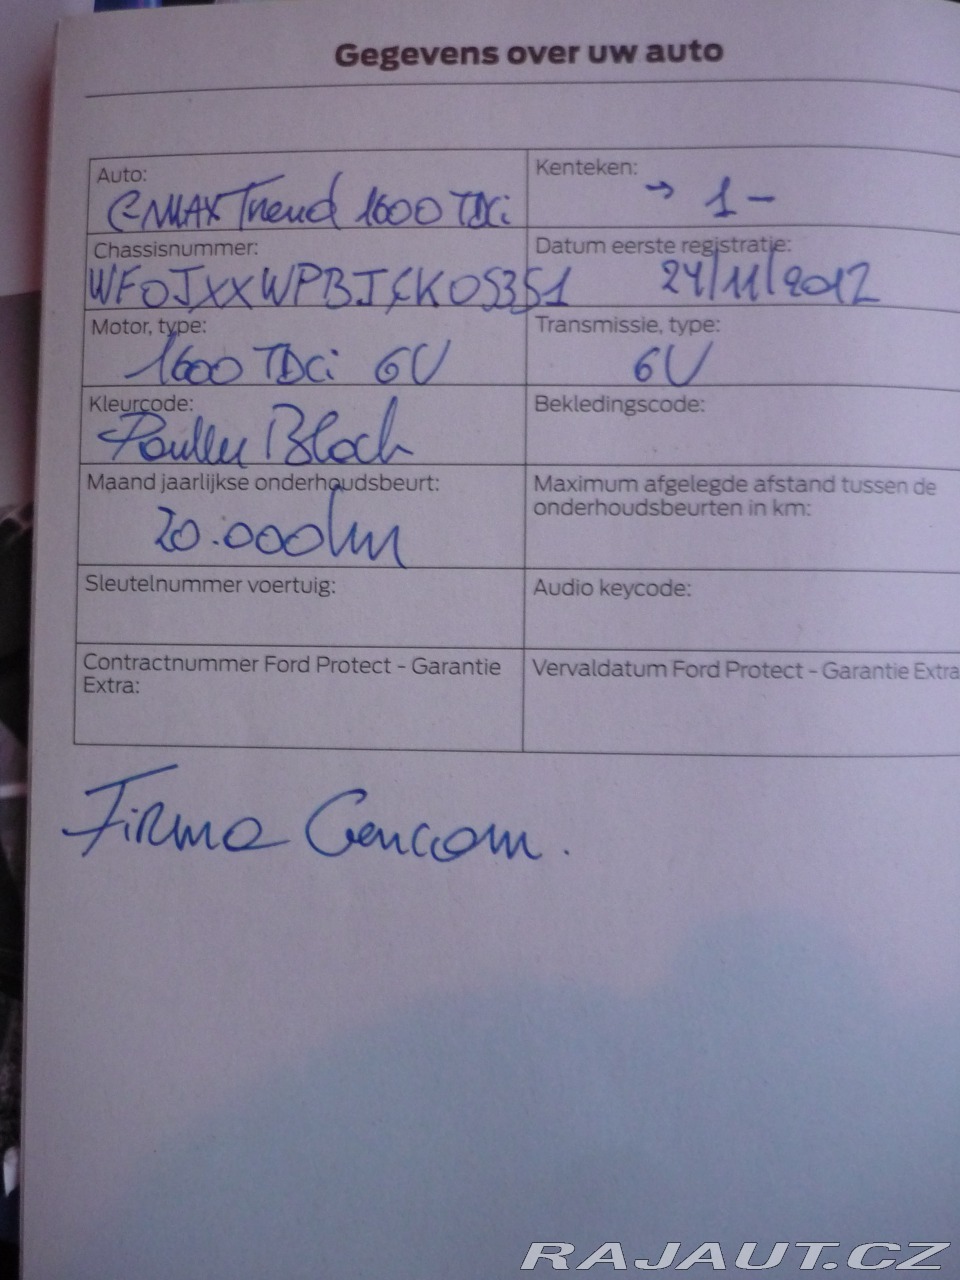 Gegevens over uw auto
Auto:
C-MAX Trend 1600 TDCi
Kenteken:
→ 1 -
Chassisnummer:
WF0JXXWPBJCK05351
Datum eerste registratie:
24/11/2012
Motor, type:
1600 TDCi 6V
Transmissie, type:
6V
Kleurcode:
Black
Bekledingscode:
Maand jaarlijkse onderhoudsbeurt:
20.000km
Maximum afgelegde afstand tussen de
onderhoudsbeurten in km:
Sleutelnummer voertuig:
Audio keycode:
Contractnummer Ford Protect - Garantie
Extra:
Vervaldatum Ford Protect - Garantie Extra
Firma Cencom.
RAJAUT.CZ